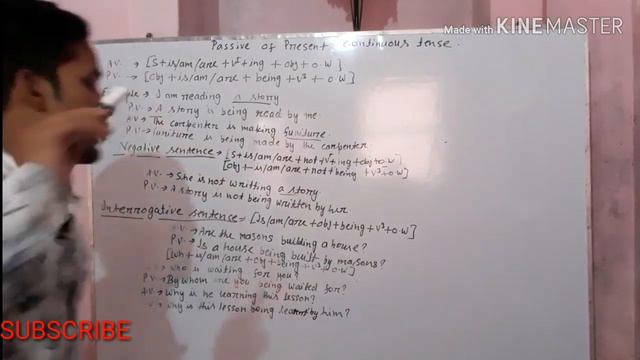 Made with KINEMASTER
Passive of Present continuous tense.
A.V. → [S+is/am/are+v¹+ing+obj+o.w]
P.V. → [obj+is/am/are+being+v³+o.w]
I am reading a story
P.V. → A story is being read by me
A.V → The carpenter is making funiture.
P.V → funiture is being made by the carpenter
Negative sentence → [S+is/am/are+not+v¹+ing+obj+o.w]
[obj+is/am/are+not+being+v³+o.w]
A.V. → She is not writting a story
P.V. → A story is not being written by her
Interrogative sentence = [is/am/are+obj+being+v³+o.w]
→ Are the masons building a house?
P.V. → Is a house being built by masons?
[wh+is/am/are+obj+being+v³+o.w]
who is waiting for you?
P.V → By whom are you being waited for?
A.V. → why is he learning this lesson?
why is this lesson being learnt by him?
SUBSCRIBE